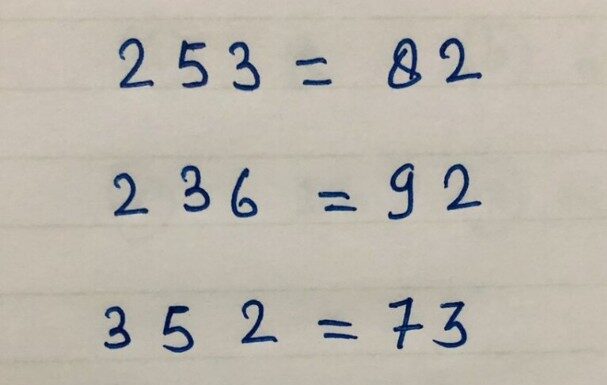 2 5 3 = 82
2 3 6 = 92
3 5 2 = 73